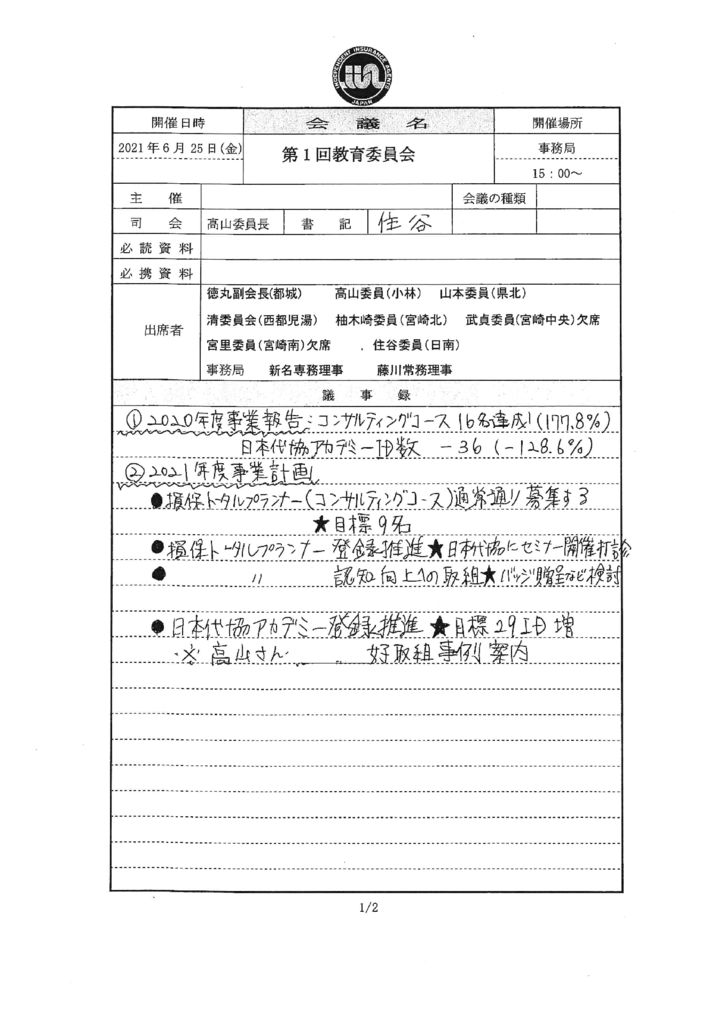 INDEPENDENT INSURANCE AGENTS
JAPAN
開催日時 会議名 開催場所
2021年6月25日(金) 第1回教育委員会 事務局
15:00～
主催 会議の種類
司会 高山委員長 書記 住谷
必読資料
必携資料
出席者
徳丸副会長(都城) 高山委員(小林) 山本委員(県北)
清委員会(西都児湯) 柚木崎委員(宮崎北) 武貞委員(宮崎中央)欠席
宮里委員(宮崎南)欠席 住谷委員(日南)
事務局 新名専務理事 藤川常務理事
議事録
① 2020年度事業報告:コンサルティングコース 16名達成!(177.8%)
日本代協アカデミーID数 -36 (-128.6%)
② 2021年度事業計画
●損保トータルプランナー(コンサルティングコース)通常通り募集する
★目標9名
●損保トータルプランナー 登録推進★日本代協にセミナー開催打診
● 〃 認知向上への取組★バッジ贈呈など検討
●日本代協アカデミー登録推進 ★目標29ID増
※高山さん 好取組事例案内
1/2